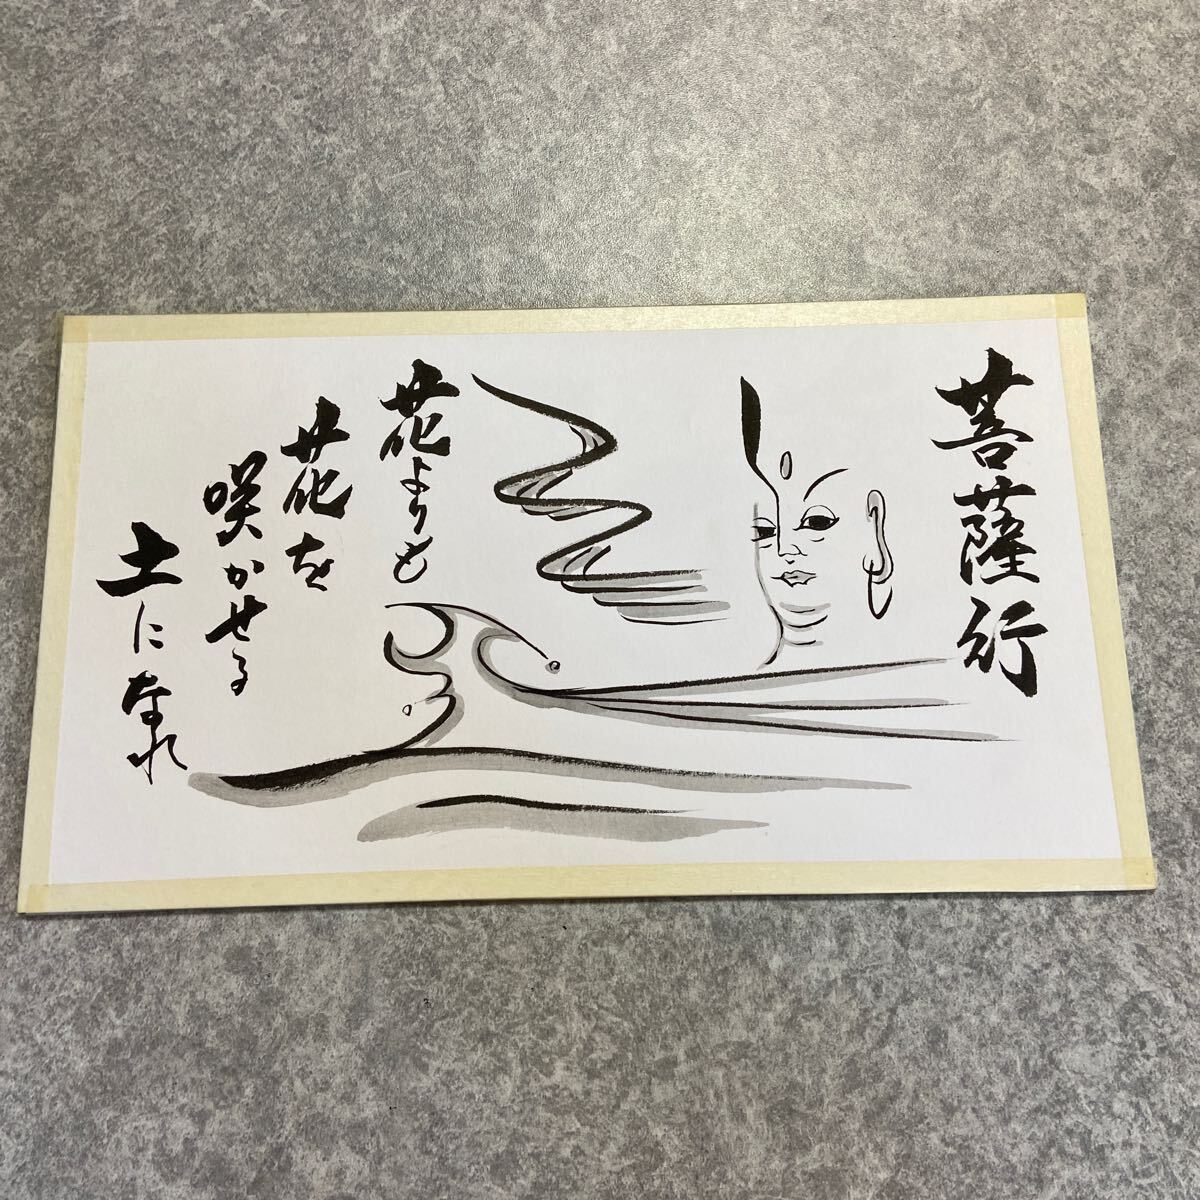 菩薩行
花よりも
花を
咲かせる
土になれ